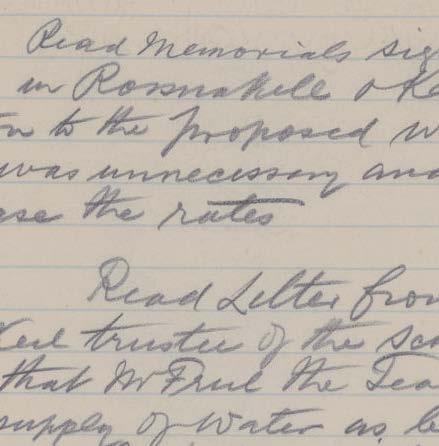 Read Memorials sig
in Rossnakill & Ke
to the proposed w
was unnecessary and
ase the rates
Read Letter from
Keel trustee of the Sch
that Mr Friel the Tea
supply of Water as be